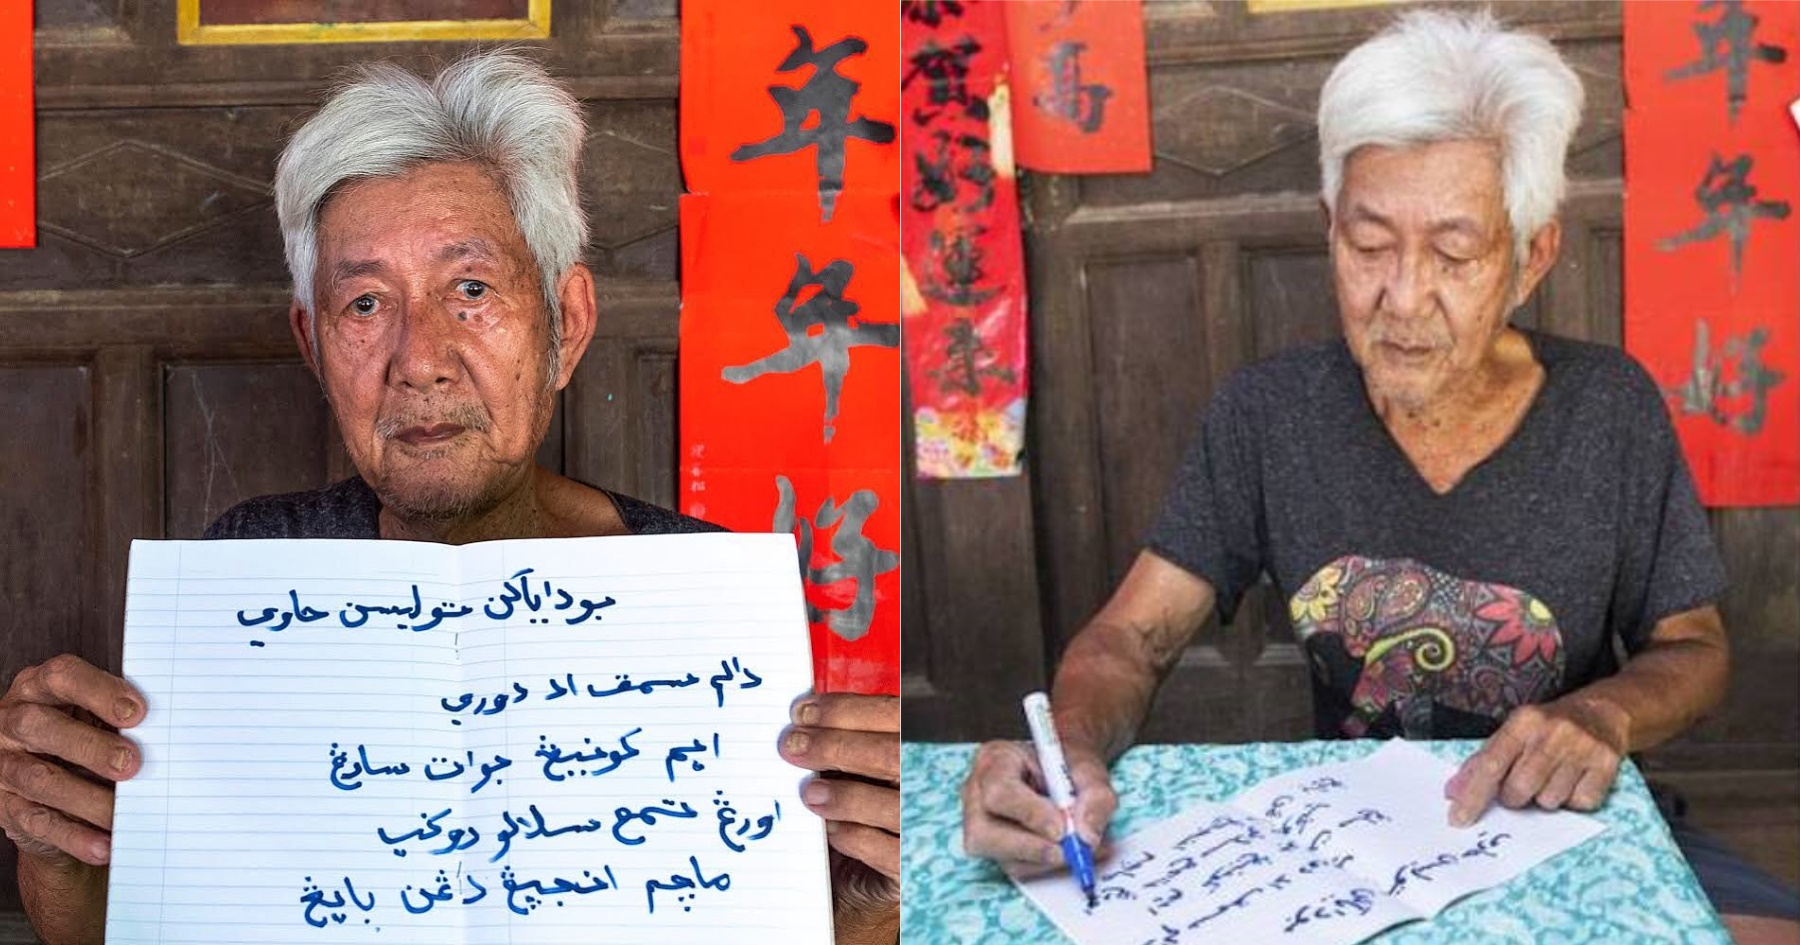 بوداياکن توليسن جاوي
دالم سمق اد دوري
ايم كونيڠ بوات سارڠ
اورڠ تمع سلالو روكي
ماچم انجيڠ دڠن بايڠ
年年好
賀好運來
高
年年好